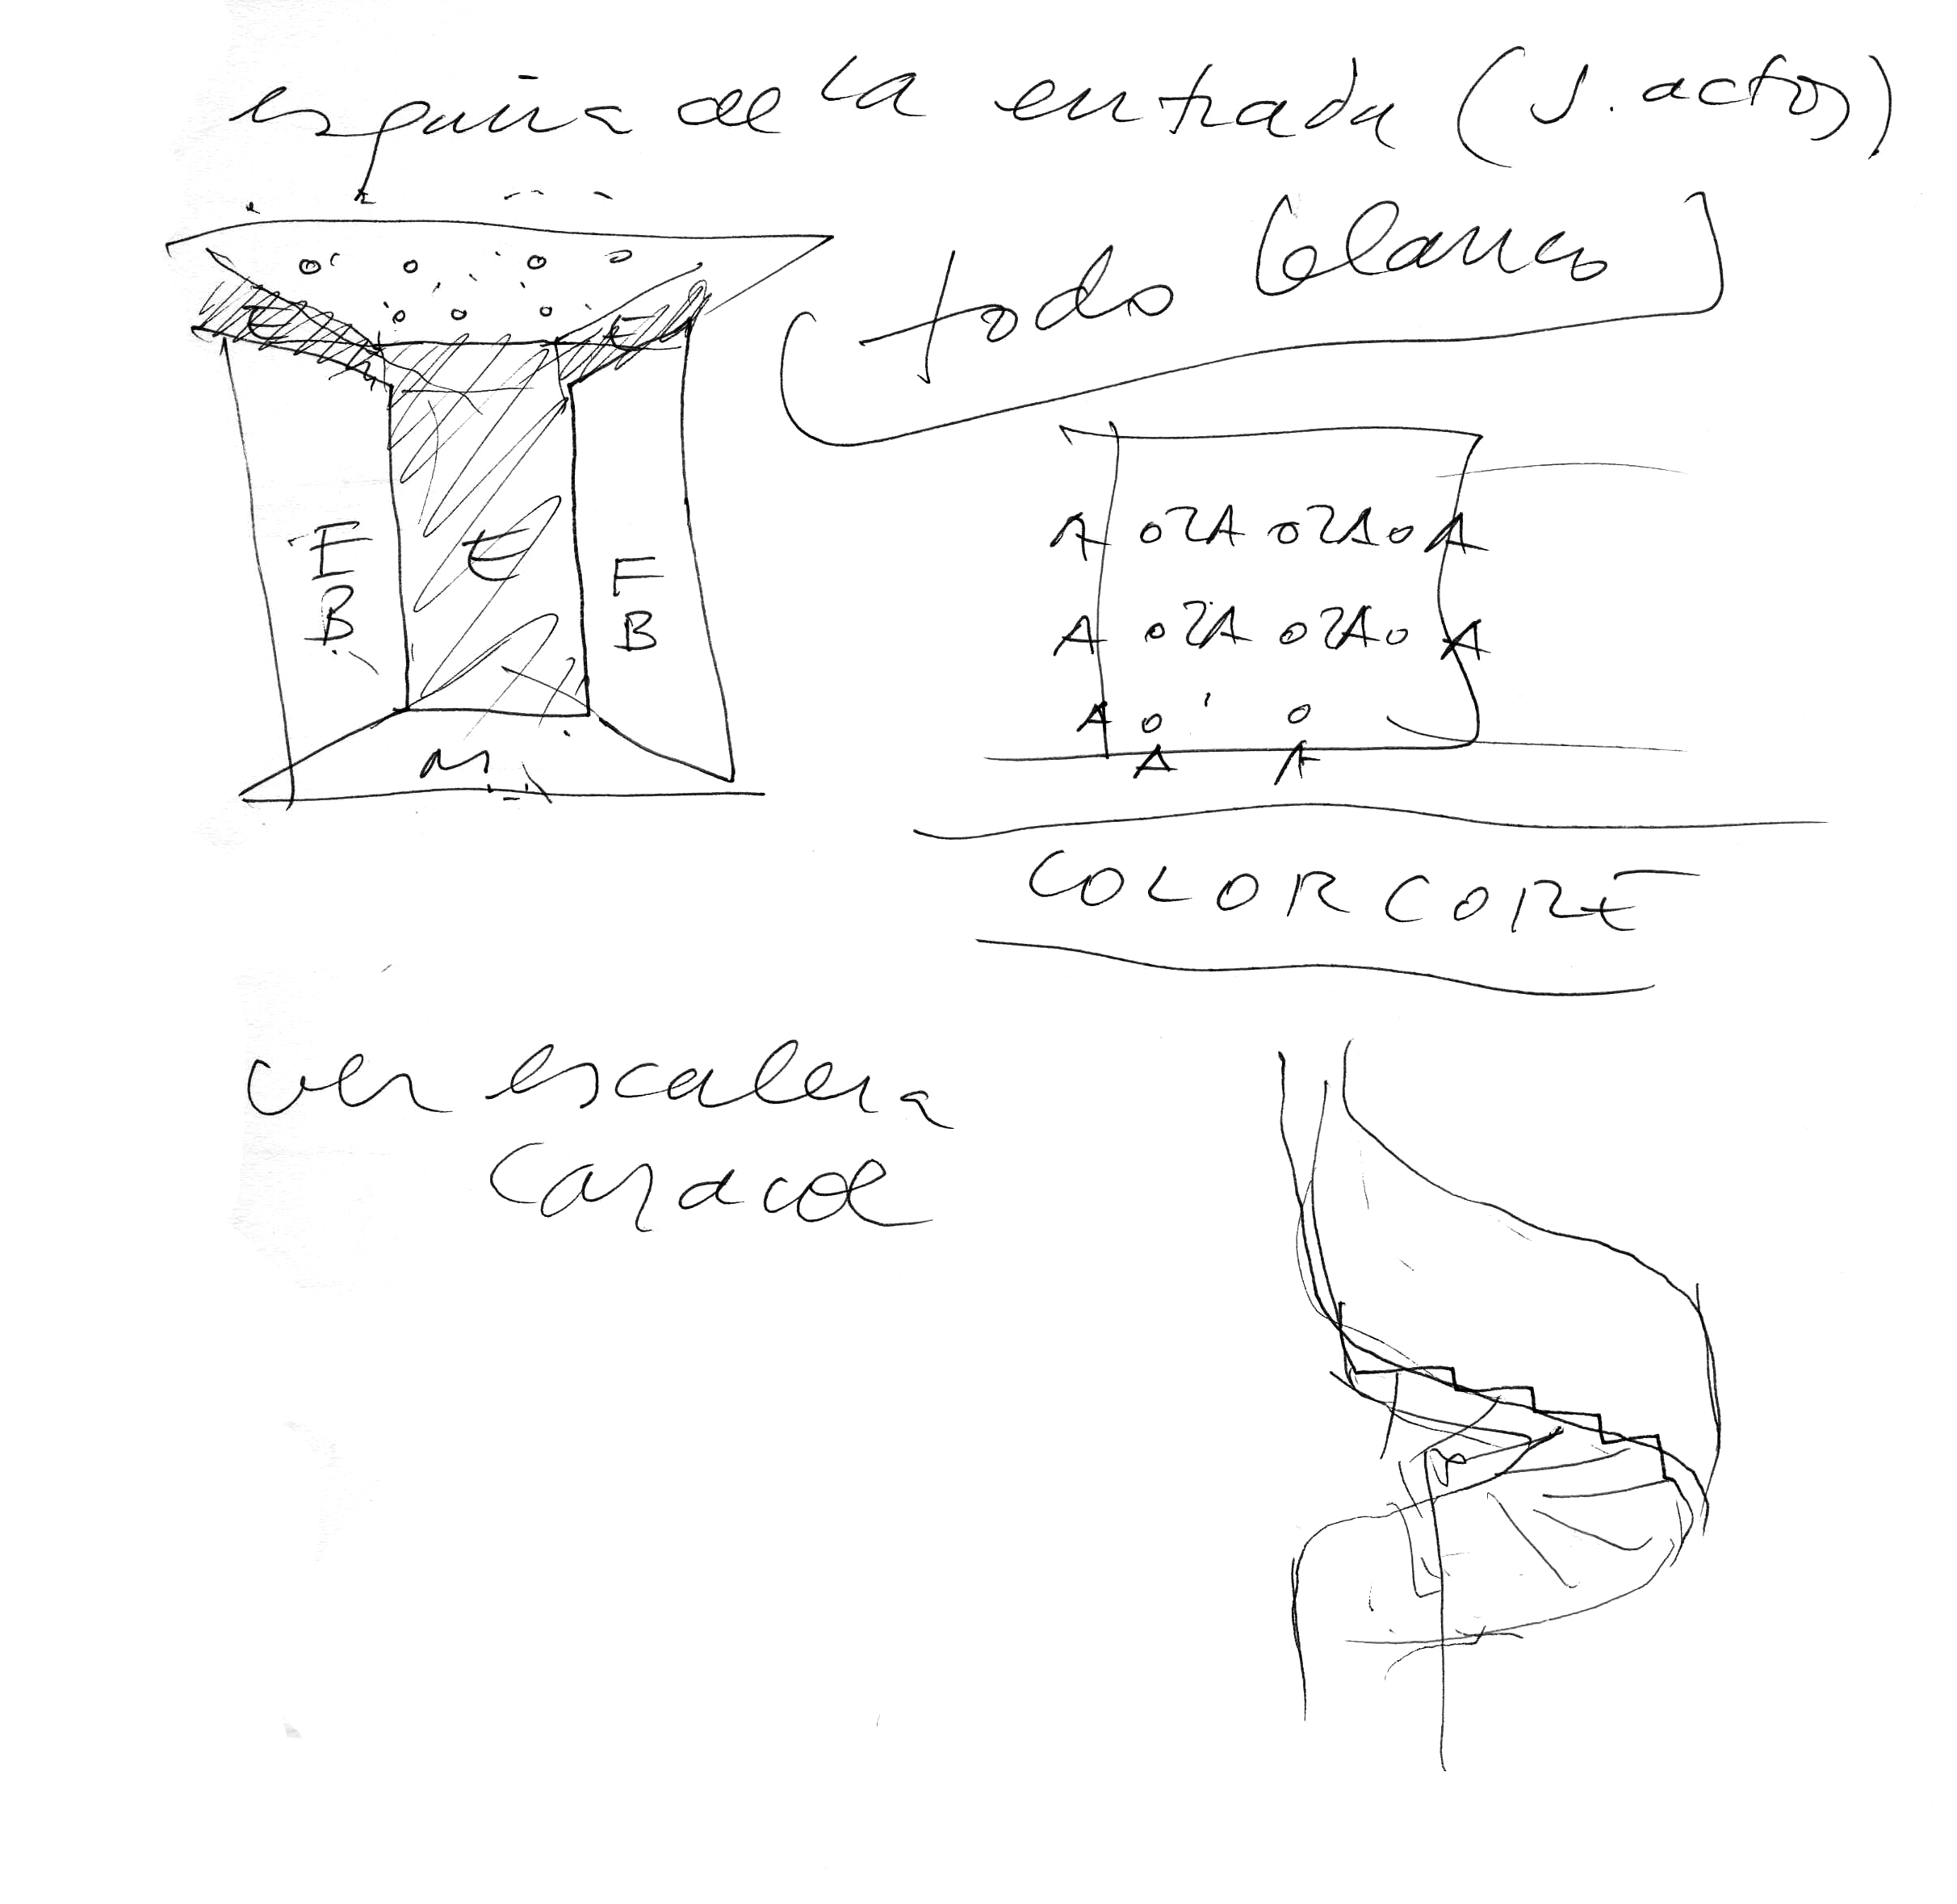 esquina de la entrada (s. actos)
todo blanco
E
E
F
B
E
F
B
M
A o 2A o 2A o A
A o 2A o 2A o A
A o o
A A
COLORCORE
ver escalera
caracol